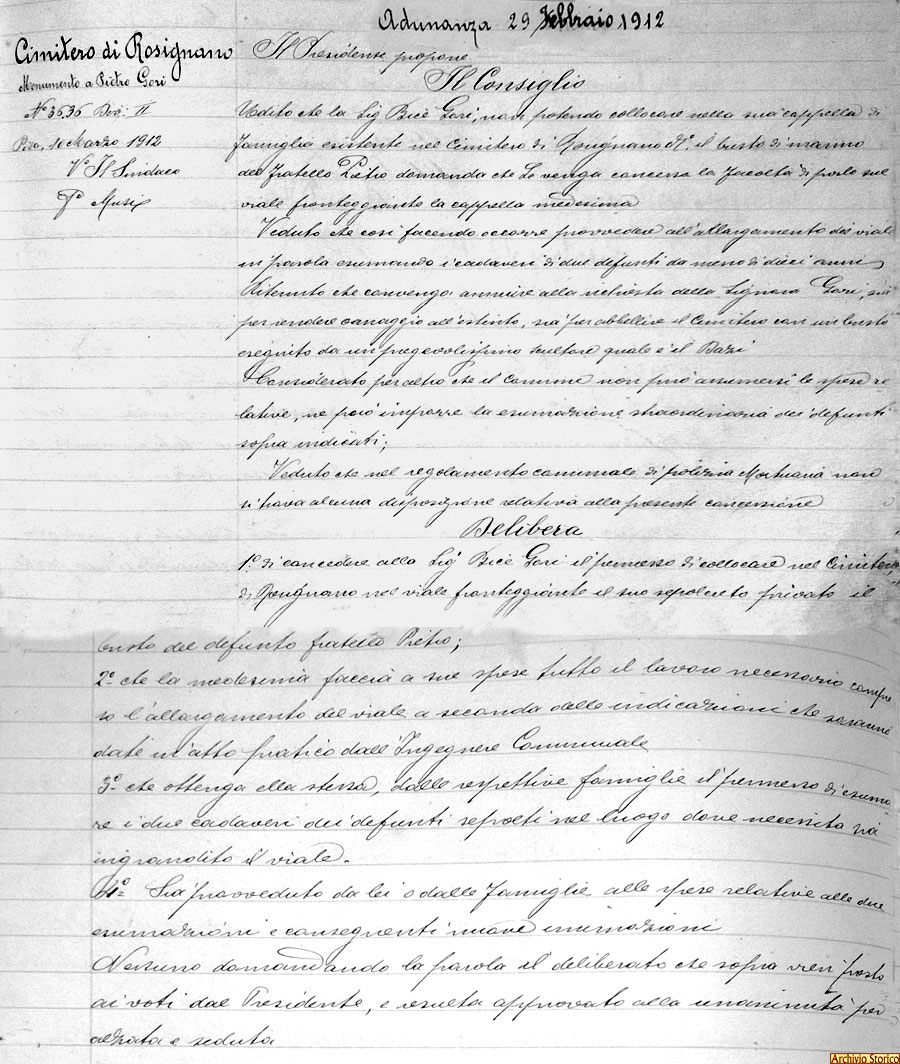 Adunanza 29 Febbraio 1912
Cimitero di Rosignano
Monumento a Pietro Gori
N° 3636 Div. II
Pisa, 10 Marzo 1912
V° Il Sindaco
Il Presidente propone
Il Consiglio
Udito che la Sig Bice Gori, non potendo collocare nella sua cappella di
famiglia esistente nel Cimitero di Rosignano M° il busto di marmo
del fratello Pietro domanda che Le venga concessa la facoltà di porlo sul
viale fronteggiante la cappella medesima
Veduto che così facendo occorre provvedere all'allargamento del viale
in parola esumando i cadaveri di due defunti da meno di dieci anni
Ritenuto che convenga annuire alla richiesta della Signora Gori, sia
per rendere omaggio all'estinto, sia per abbellire il Cimitero con un busto
eseguito da un pregevolissimo scultore quale è il
Considerato peraltro che il Comune non può assumersi le spese re
lative, ne può imporre la esumazione straordinaria dei defunti
sopra indicati;
Veduto che nel regolamento comunale di polizia Mortuaria non
si trova alcuna disposizione relativa alla presente concessione
Delibera
1° di concedere alla Sig Bice Gori il permesso di collocare nel Cimitero
di Rosignano nel viale fronteggiante il suo sepolcreto privato il
busto del defunto fratello Pietro;
2° che la medesima faccia a sue spese tutto il lavoro necessario compre
so l'allargamento del viale a seconda delle indicazioni che saranno
date in atto pratico dall'Ingegnere Comunale
3° che ottenga ella stessa, dalle respettive famiglie il permesso di esuma
re i due cadaveri dei defunti sepolti nel luogo dove necessita sia
ingrandito il viale.
4° Sia provveduto da lei o dalle famiglie alle spese relative alle due
esumazioni e conseguenti nuove inumazioni
Nessuno domandando la parola il deliberato che sopra vien posto
ai voti dal Presidente, e resulta approvato alla unanimità per
alzata e seduta
Archivio Storico